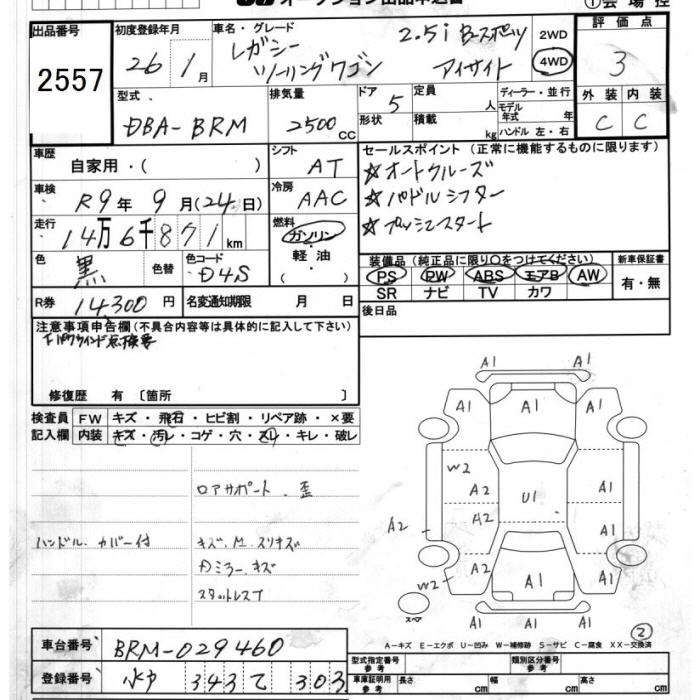 オークション出品申込書
①会場控
出品番号
2557
初度登録年月
26 1月
車名・グレード
レガシー
ツーリングワゴン
2.5i B-スポーツ
アイサイト
2WD
4WD
評価点
3
外装 内装
C C
型式
DBA-BRM
排気量
2500cc
ドア 5
形状
定員 人
積載 kg
ディーラー・並行
モデル年式 年式
ハンドル 左・右
車歴
自家用・( )
シフト
AT
車検
R9年 9月(24日)
冷房
AAC
走行
14万6千871km
燃料
ガソリン
軽油
( )
色
黒
色替
色コード
D4S
R券 14,300円
名変通知期限 月 日
セールスポイント(正常に機能するものに限ります)
☆オートクルーズ
☆パドルシフター
☆プッシュスタート
装備品(純正品に限り○をつけてください)
PS PW ABS エアB AW
SR ナビ TV カワ
新車保証書
有・無
後日品
注意事項申告欄(不具合内容等は具体的に記入して下さい)
修復歴 有 〔箇所 〕
検査員 FW キズ・飛石・ヒビ割・リペア跡・×要
記入欄 内装 キズ・汚レ・コゲ・穴・スレ・キレ・破レ
ロアサポート、歪
ハンドル、カバー付
キズ、M、スリキズ
Dミラー、キズ
スタットレス7
A1 A1
A1 A1 A1
W2
A2 U1 A1
A2 A2 A1
W2 A1 A1 A1
A1 A1 A1
スペア
②
A-キズ E-エクボ U-凹み W-補修跡 S-サビ C-腐食 XX-交換済
車台番号 BRM-029460
登録番号 343 て 303
型式指定番号 参考
類別区分番号 参考
車庫証明用 参考
長さ cm 幅 cm 高さ cm